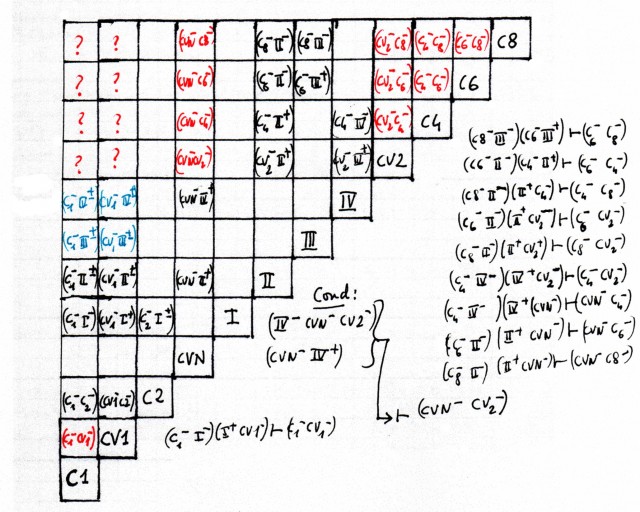 ? ? (CVN⁻ C8⁻) (C₈⁻ II⁻) (C₈⁻ III⁻) (CV₂⁻ C₈⁻) (C₄⁻ C₈⁻) (C₆⁻ C₈⁻) C8
? ? (CVN⁻ C₆⁻) (C₆⁻ II⁻) (C₆⁻ III⁺) (CV₂⁻ C₆⁻) (C₄⁻ C₆⁻) C6
? ? (CVN⁻ C₄⁻) (C₄⁻ II⁺) (C4⁻ IV⁻) (CV₂⁻ C₄⁻) C4
? ? (CVN⁻ CV₂⁻) (CV₂⁻ II⁺) (CV₂⁻ IV⁺) CV2
(C₁⁻ IV±) (CV₁⁻ IV±) (CVN⁻ IV±) IV
(C₁⁻ III±) (CV₁⁻ III±) III
(C₁⁻ II±) (CV₁⁻ II±) (CVN⁻ II±) II
(C₁⁻ I⁻) (CV₁⁻ I⁺) (C₂⁻ I±) I
CVN
(C₁⁻ C₂⁻) C2
(C₁⁻ CV₁⁻) CV1
C1
(C₁⁻ I⁻)(I⁺ CV1⁻) ⊢ (C₁⁻ CV₁⁻)
Cond:
(IV⁻ CVN⁻ CV2⁻)
(CVN⁻ IV⁺)
⊢ (CVN⁻ CV₂⁻)
(C8⁻ III⁻)(C6⁻ III⁺) ⊢ (C₆⁻ C₈⁻)
(C6⁻ II⁻)(C4⁻ II⁺) ⊢ (C₆⁻ C₄⁻)
(C8⁻ II⁻)(II⁺ C₄⁻) ⊢ (C₄⁻ C₈⁻)
(C₆⁻ II⁻)(II⁺ CV₂⁻) ⊢ (C₆⁻ CV₂⁻)
(C₈⁻ II⁻)(II⁺ CV₂⁻) ⊢ (C₈⁻ CV₂⁻)
(C₄⁻ IV⁻)(IV⁺ CV₂⁻) ⊢ (C₄⁻ CV₂⁻)
(C₄⁻ IV⁻)(IV⁺ CVN⁻) ⊢ (CVN⁻ C₄⁻)
(C₆⁻ II⁻)(II⁺ CVN⁻) ⊢ (CVN⁻ C₆⁻)
(C₈⁻ II⁻)(II⁺ CVN⁻) ⊢ (CVN⁻ C8⁻)